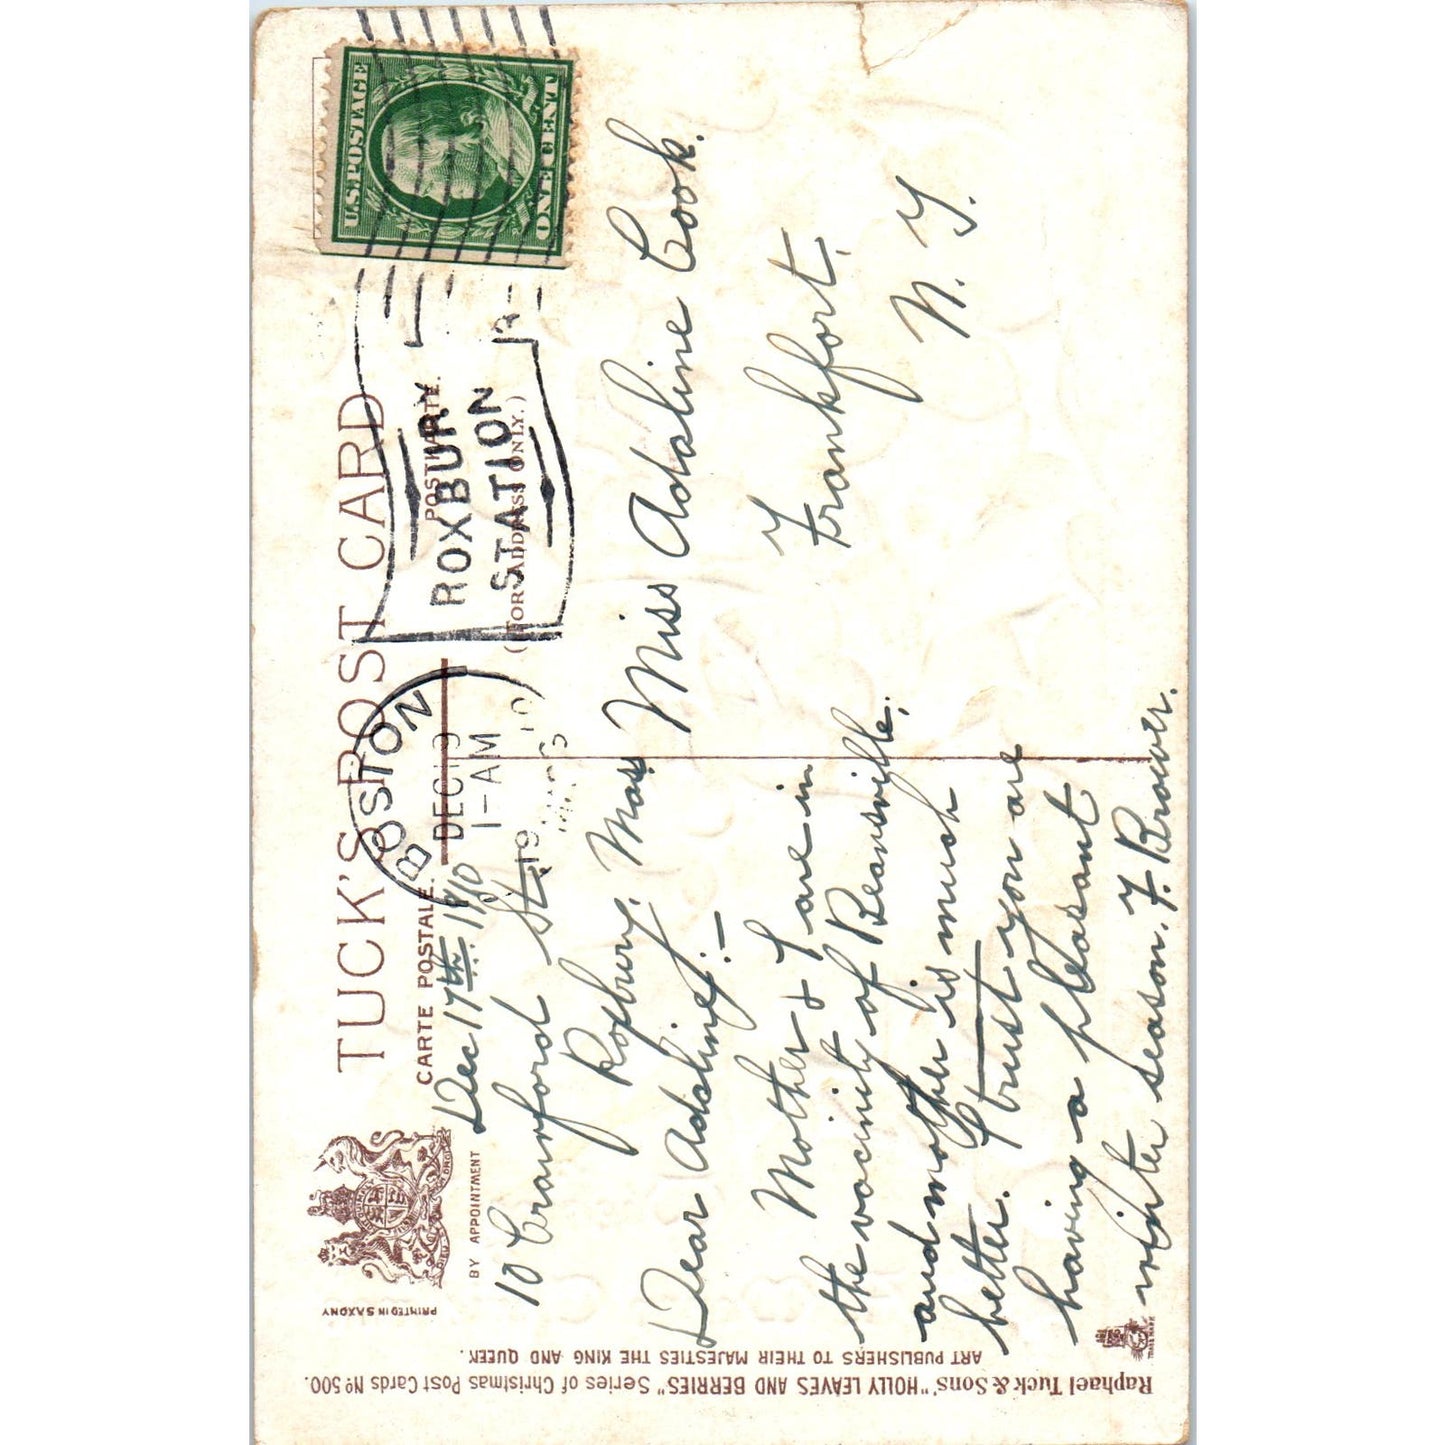 TUCK'S POST CARD
CARTE POSTALE.
POSTKARTE.
(FOR ADDRESS ONLY.)
BY APPOINTMENT
PRINTED IN SAXONY
BOSTON
DEC 19
1-AM
1910
MASS
ROXBURY
STATION
U.S. POSTAGE
ONE CENT
Dec 17th 1910
10 Cranford St.,
Roxbury, Mass
Dear Adaline; —
Mother & I are in
the vicinity of Beansville,
and mother is much
better. I trust you are
having a pleasant
winter season. F. Brower.
Miss Adaline Cook.
Frankfort.
N. Y.
Raphael Tuck & Sons' "HOLLY LEAVES AND BERRIES" Series of Christmas Post Cards No 500.
ART PUBLISHERS TO THEIR MAJESTIES THE KING AND QUEEN.
TRADE MARK